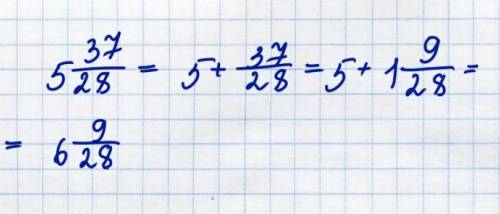 5 37/28 = 5 + 37/28 = 5 + 1 9/28 =
= 6 9/28